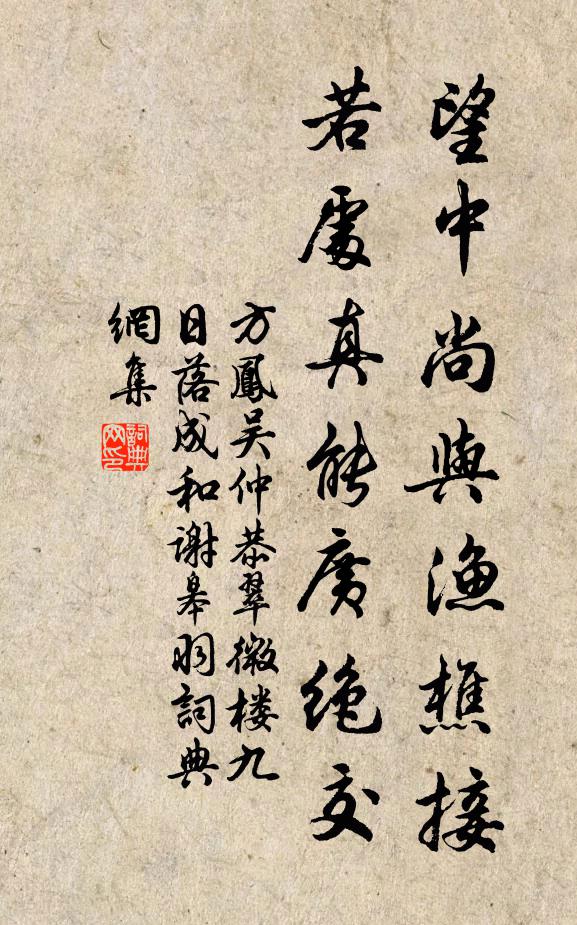 望中尚與漁樵接
若處真能廣絕交
方鳳吴仲恭翠微楼九
日落成和谢皋羽詞典
網集
詞典
网印